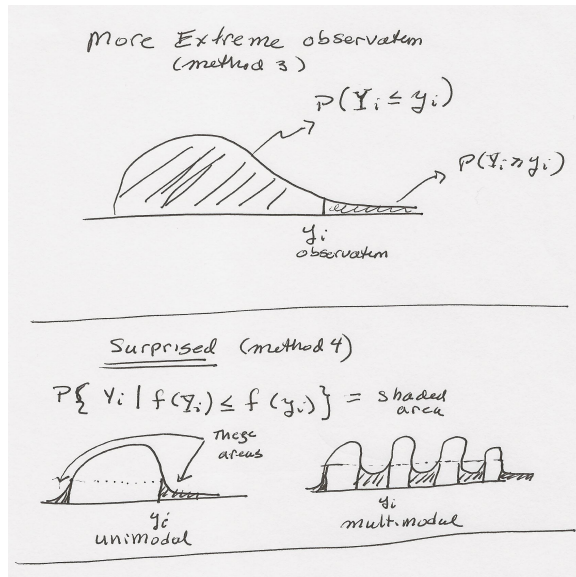 More Extreme observation
(method 3)
P(Yi ≤ yi)
P(Yi ≥ yi)
yi
observation
Surprised (method 4)
P{ Yi | f(Yi) ≤ f(yi)} = shaded area
These areas
yi
unimodal
yi
multimodal